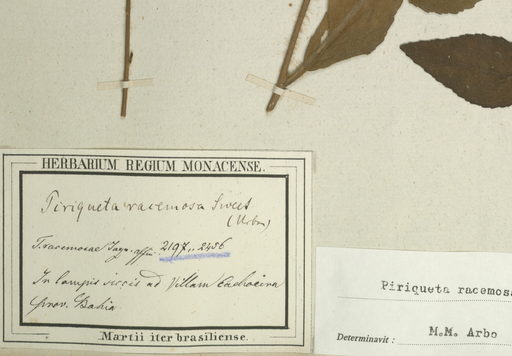 HERBARIUM REGIUM MONACENSE.
Piriqueta racemosa Sweet
(Urban)
T. racemosae Jaqu. affin. 2197, 2456
In campis siccis ad Villam Cachoeira
prov. Bahia.
Martii iter brasiliense.
Piriqueta racemosa
Determinavit : M.M. Arbo